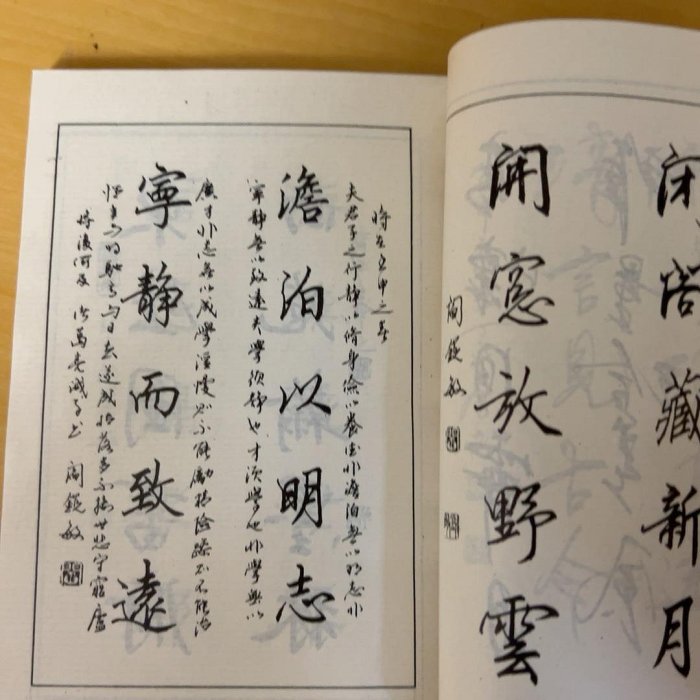 閉閣藏新月
開窓放野雲
閻銳敏
時在壬申之春
夫君子之行静以脩身儉以養德非澹泊無以明志非
澹泊以明志
寧静無以致遠夫學須静也才須學也非學無以
廣才非志無以成學淫慢則不能勵精險躁則不能治
寧静而致遠
性年与时馳意与日去遂成枯落多不接世悲守窮廬
將復何及 諸葛亮誡子書 閻銳敏